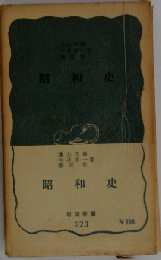 昭和史
遠山茂樹
今井清一著
藤原彰
昭和史
岩波新書
223
¥130.